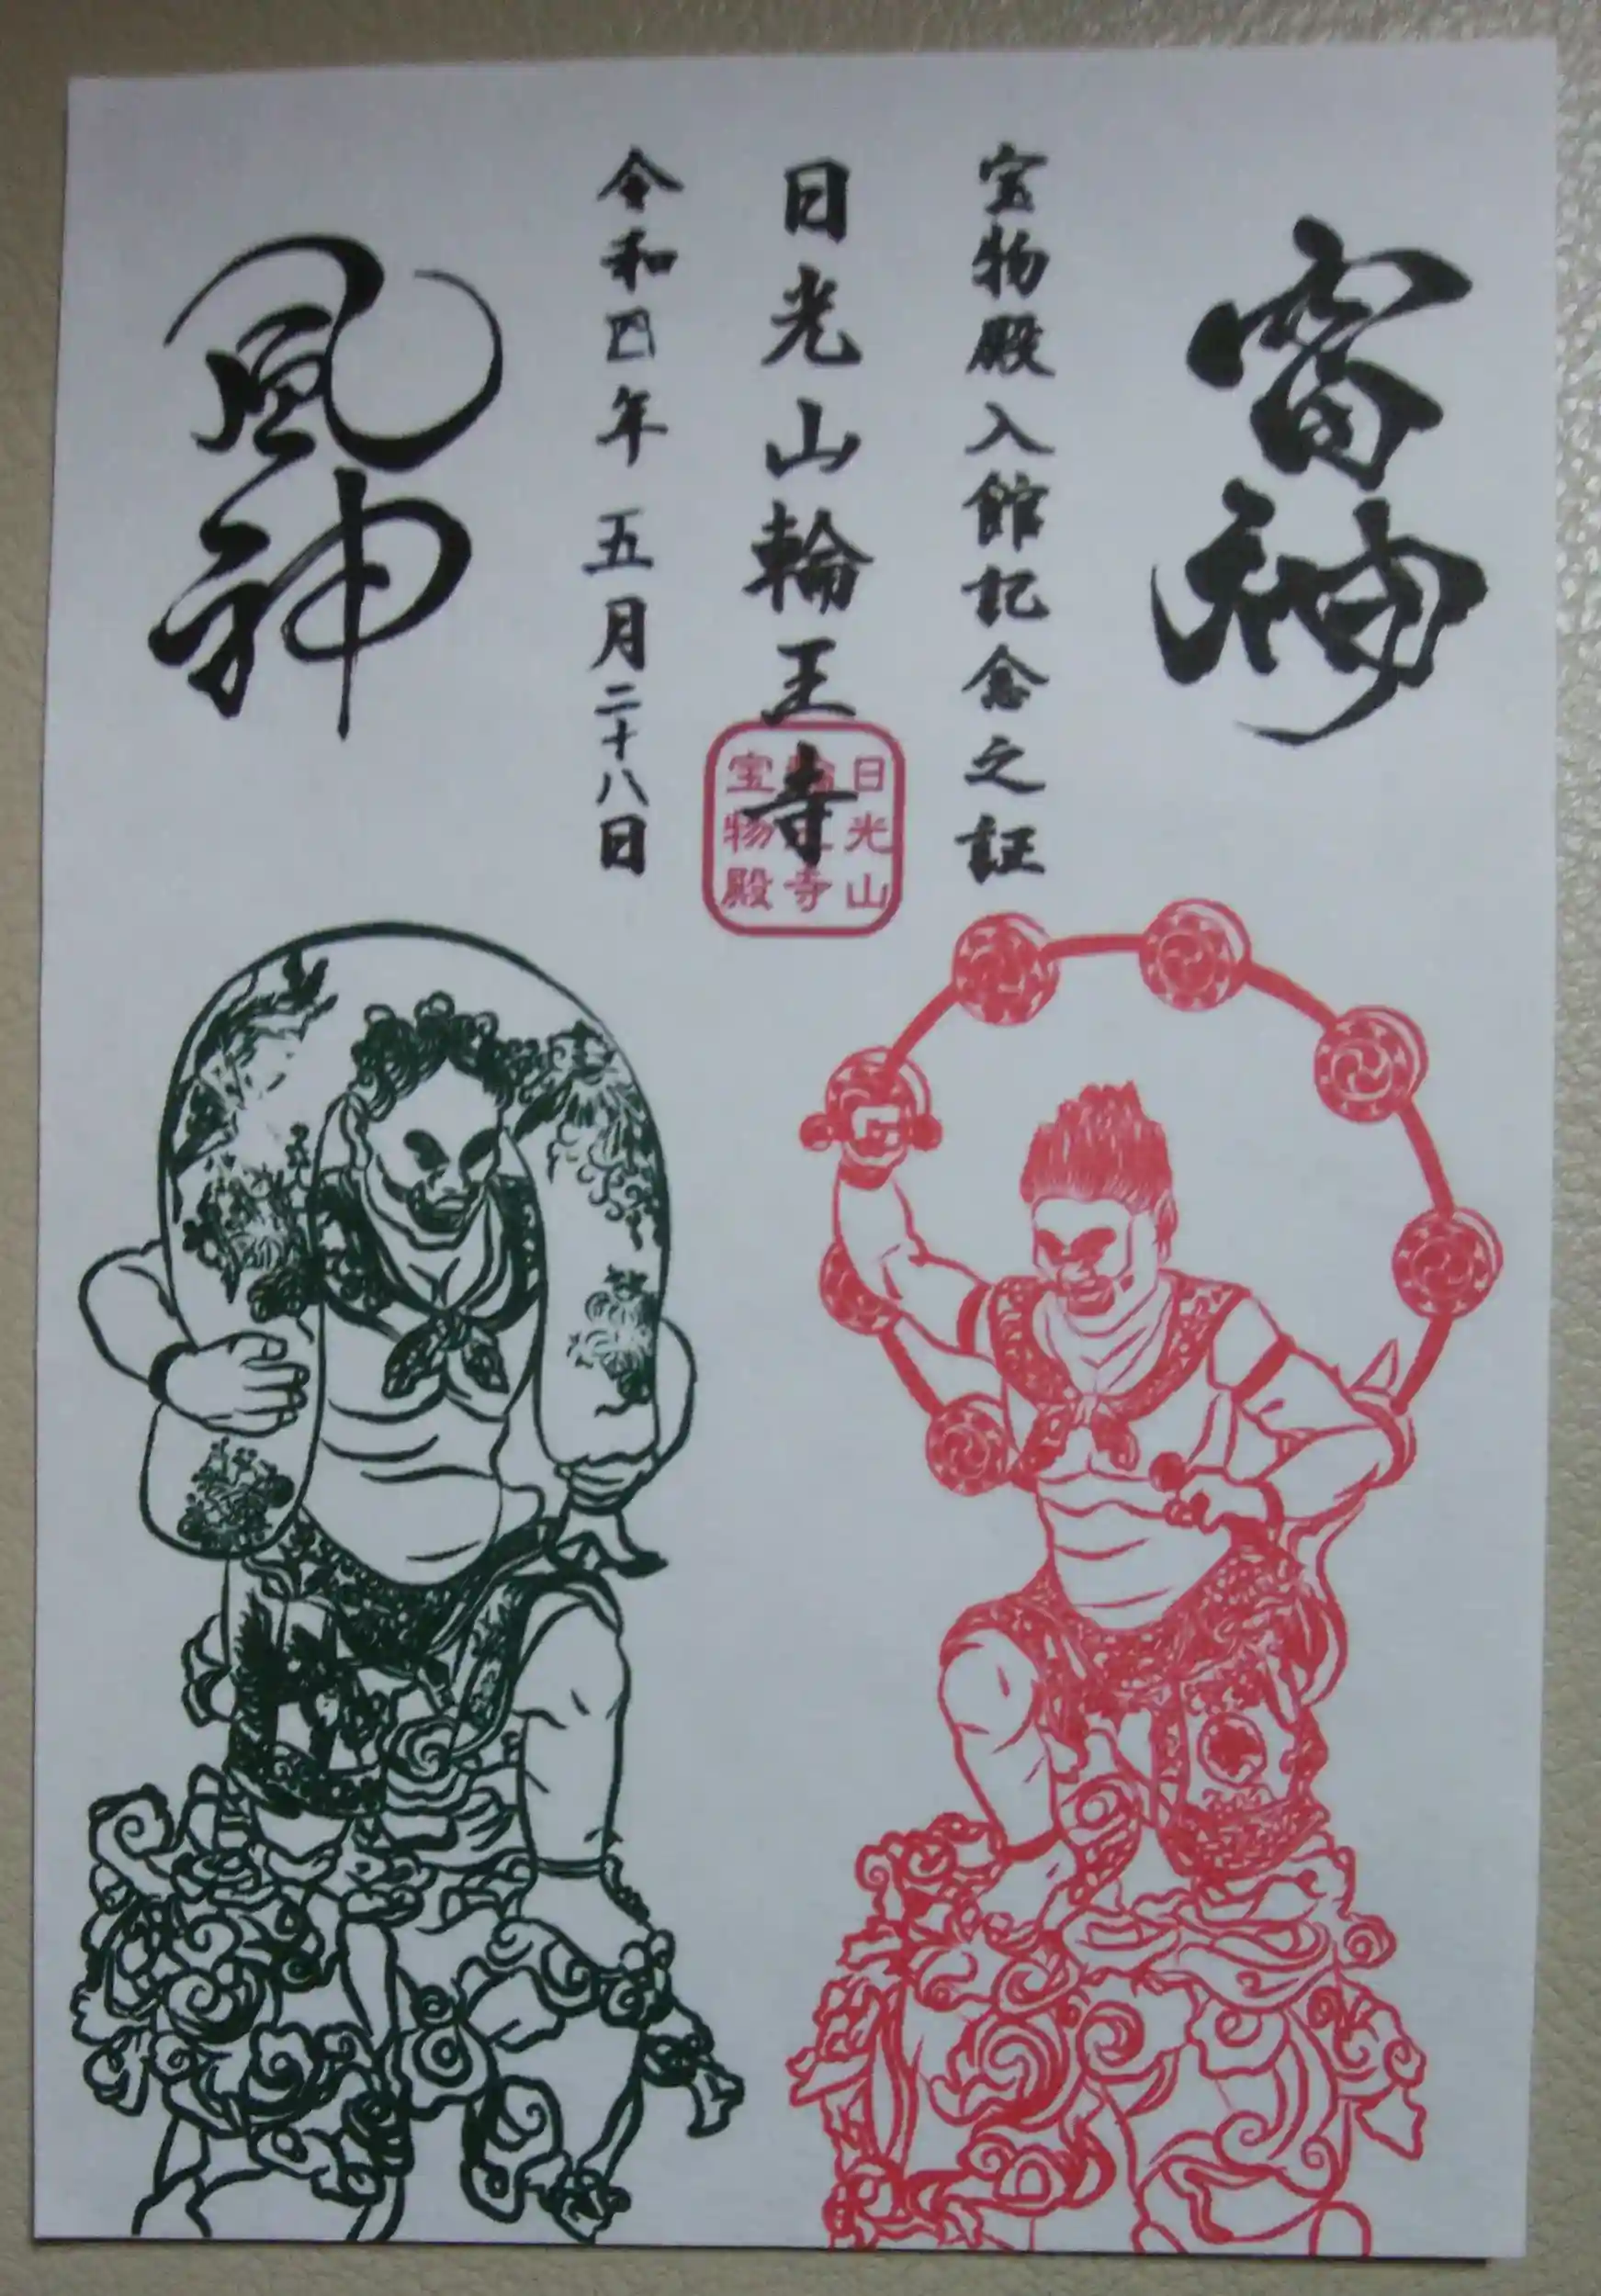 雷神
宝物殿入館記念之証
日光山輪王寺
令和四年 五月二十八日
風神
日光山
輪王寺
宝物殿